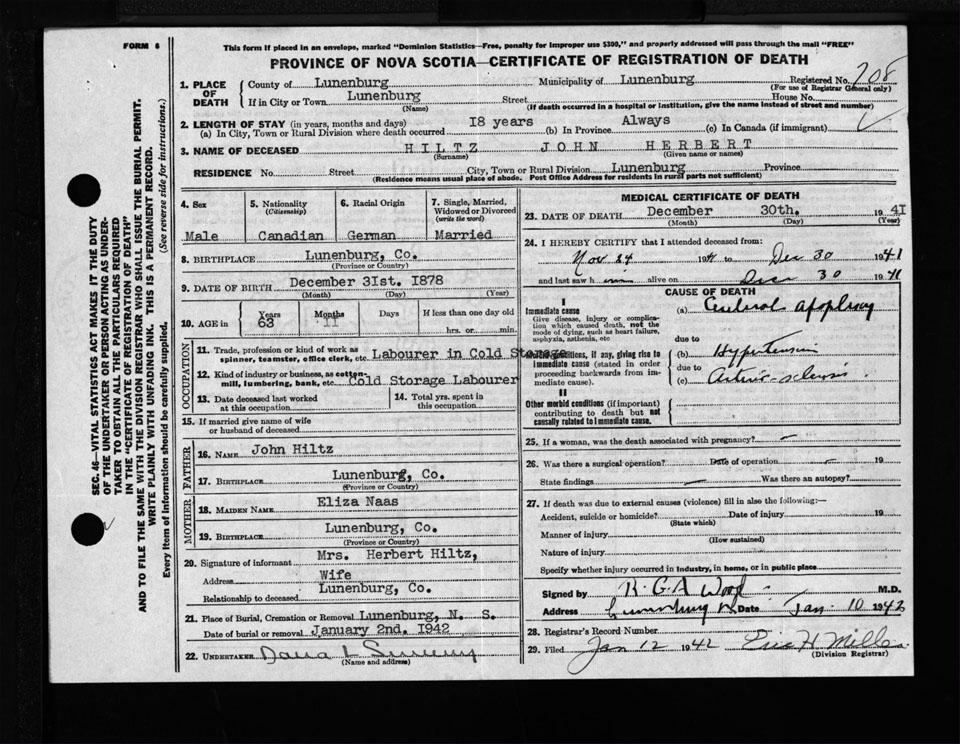 FORM 6
This form if placed in an envelope, marked "Dominion Statistics—Free, penalty for improper use $300," and properly addressed will pass through the mail "FREE"
PROVINCE OF NOVA SCOTIA—CERTIFICATE OF REGISTRATION OF DEATH
1. PLACE OF DEATH
County of Lunenburg Municipality of Lunenburg Registered No. 708
(For use of Registrar General only)
If in City or Town Lunenburg Street House No.
(Name) (If death occurred in a hospital or institution, give the name instead of street and number)
2. LENGTH OF STAY (in years, months and days)
(a) In City, Town or Rural Division where death occurred 18 years (b) In Province Always (c) In Canada (if immigrant)
3. NAME OF DECEASED HILTZ JOHN HERBERT
(Surname) (Given name or names)
RESIDENCE No. Street City, Town or Rural Division Lunenburg Province
(Residence means usual place of abode. Post Office Address for residents in rural parts not sufficient)
4. Sex 5. Nationality (Citizenship) 6. Racial Origin 7. Single, Married, Widowed or Divorced (write the word)
Male Canadian German Married
8. BIRTHPLACE Lunenburg, Co.
(Province or Country)
9. DATE OF BIRTH December 31st. 1878
(Month) (Day) (Year)
10. AGE in Years Months Days If less than one day old
63 11 hrs. or min.
OCCUPATION
11. Trade, profession or kind of work as spinner, teamster, office clerk, etc. Labourer in Cold Storage
12. Kind of industry or business, as cotton-mill, lumbering, bank, etc. Cold Storage Labourer
13. Date deceased last worked at this occupation
14. Total yrs. spent in this occupation
15. If married give name of wife or husband of deceased
FATHER
16. NAME John Hiltz
17. BIRTHPLACE Lunenburg, Co.
(Province or Country)
MOTHER
18. MAIDEN NAME Eliza Naas
19. BIRTHPLACE Lunenburg, Co.
(Province or Country)
20. Signature of informant Mrs. Herbert Hiltz,
Address Wife
Relationship to deceased Lunenburg, Co.
21. Place of Burial, Cremation or Removal Lunenburg, N. S.
Date of burial or removal January 2nd. 1942
22. UNDERTAKER
(Name and address)
MEDICAL CERTIFICATE OF DEATH
23. DATE OF DEATH December 30th. 1941
(Month) (Day) (Year)
24. I HEREBY CERTIFY that I attended deceased from:
Nov 24 1941 to Dec 30 1941
and last saw him alive on Dec 30 1941
CAUSE OF DEATH
I
Immediate cause
Give disease, injury or complication which caused death, not the mode of dying, such as heart failure, asphyxia, asthenia, etc
(a) Cerebral apoplexy
due to
(b) Hypertension
due to
(c) Arterio-sclerosis
Morbid conditions, if any, giving rise to immediate cause (stated in order proceeding backwards from immediate cause).
II
Other morbid conditions (if important) contributing to death but not causally related to immediate cause.
25. If a woman, was the death associated with pregnancy?
26. Was there a surgical operation? Date of operation 19
State findings Was there an autopsy?
27. If death was due to external causes (violence) fill in also the following:—
Accident, suicide or homicide? Date of injury 19
(State which)
Manner of injury
(How sustained)
Nature of injury
Specify whether injury occurred in industry, in home, or in public place
Signed by R. G. A Wood M.D.
Address Lunenburg Date Jan. 10 1942
28. Registrar's Record Number
29. Filed Jan 12 1942
(Division Registrar)
SEC. 46—VITAL STATISTICS ACT MAKES IT THE DUTY
OF THE UNDERTAKER OR PERSON ACTING AS UNDER-
TAKER TO OBTAIN ALL THE PARTICULARS REQUIRED
IN THE "CERTIFICATE OF REGISTRATION OF DEATH"
AND TO FILE THE SAME WITH THE DIVISION REGISTRAR WHO SHALL ISSUE THE BURIAL PERMIT.
WRITE PLAINLY WITH UNFADING INK. THIS IS A PERMANENT RECORD.
Every item of information should be carefully supplied. (See reverse side for instructions.)